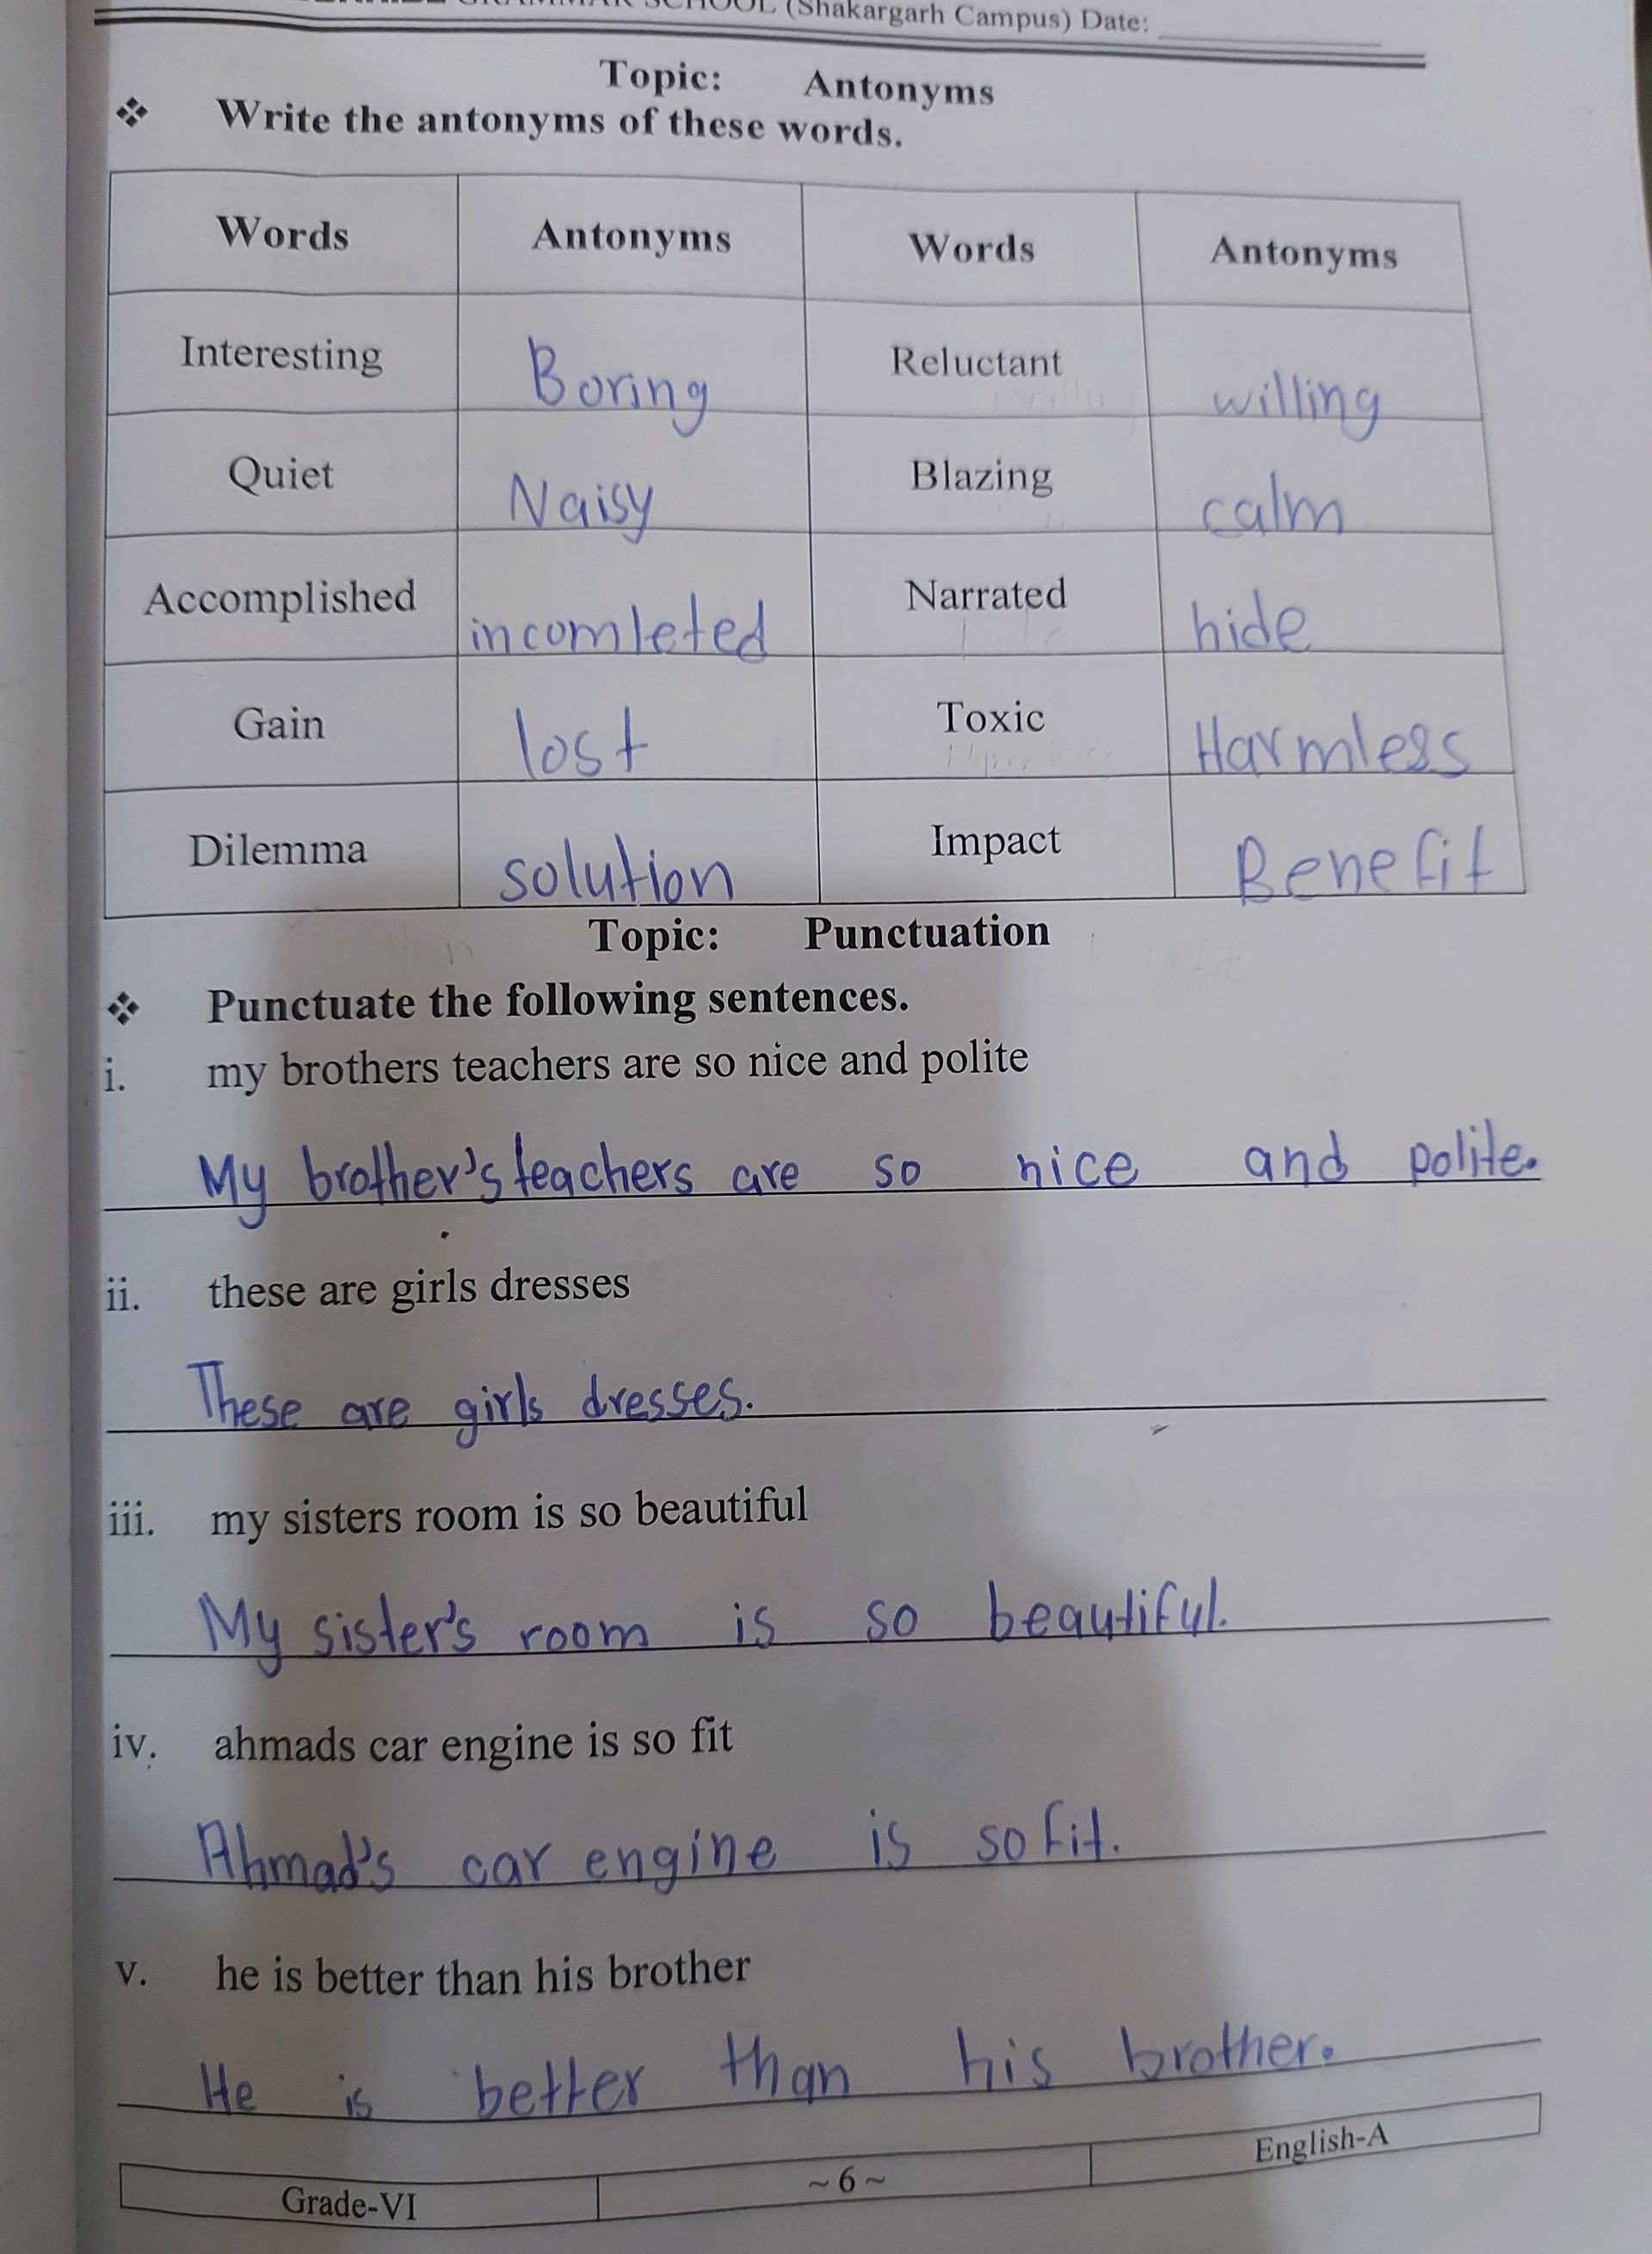 SCHOOL (Shakargarh Campus) Date:
Topic: Antonyms
❖ Write the antonyms of these words.
Words Antonyms Words Antonyms
Interesting Boring Reluctant willing
Quiet Naisy Blazing calm
Accomplished incomleted Narrated hide
Gain lost Toxic Harmless
Dilemma solution Impact Benefit
Topic: Punctuation
❖ Punctuate the following sentences.
i. my brothers teachers are so nice and polite
My brother's teachers are so nice and polite.
ii. these are girls dresses
These are girls dresses.
iii. my sisters room is so beautiful
My sister's room is so beautiful.
iv. ahmads car engine is so fit
Ahmad's car engine is so fit.
v. he is better than his brother
He is better than his brother.
Grade-VI ~ 6 ~ English-A